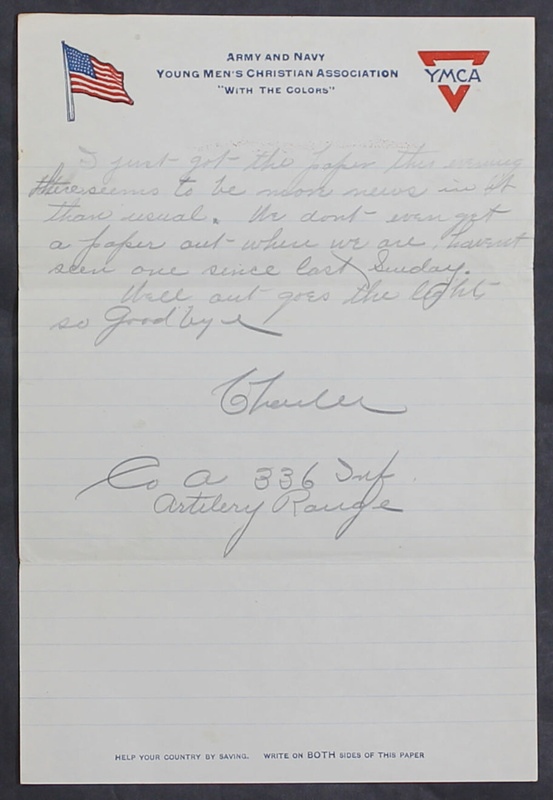 ARMY AND NAVY
YOUNG MEN'S CHRISTIAN ASSOCIATION
"WITH THE COLORS"
YMCA
I just got the paper this evening
there seems to be more news in it
than usual. We dont even get
a paper out where we are, havent
seen one since last Sunday.
Well out goes the light
so Goodbye
Charles
Co A 336 Inf.
Artilery Range
HELP YOUR COUNTRY BY SAVING. WRITE ON BOTH SIDES OF THIS PAPER